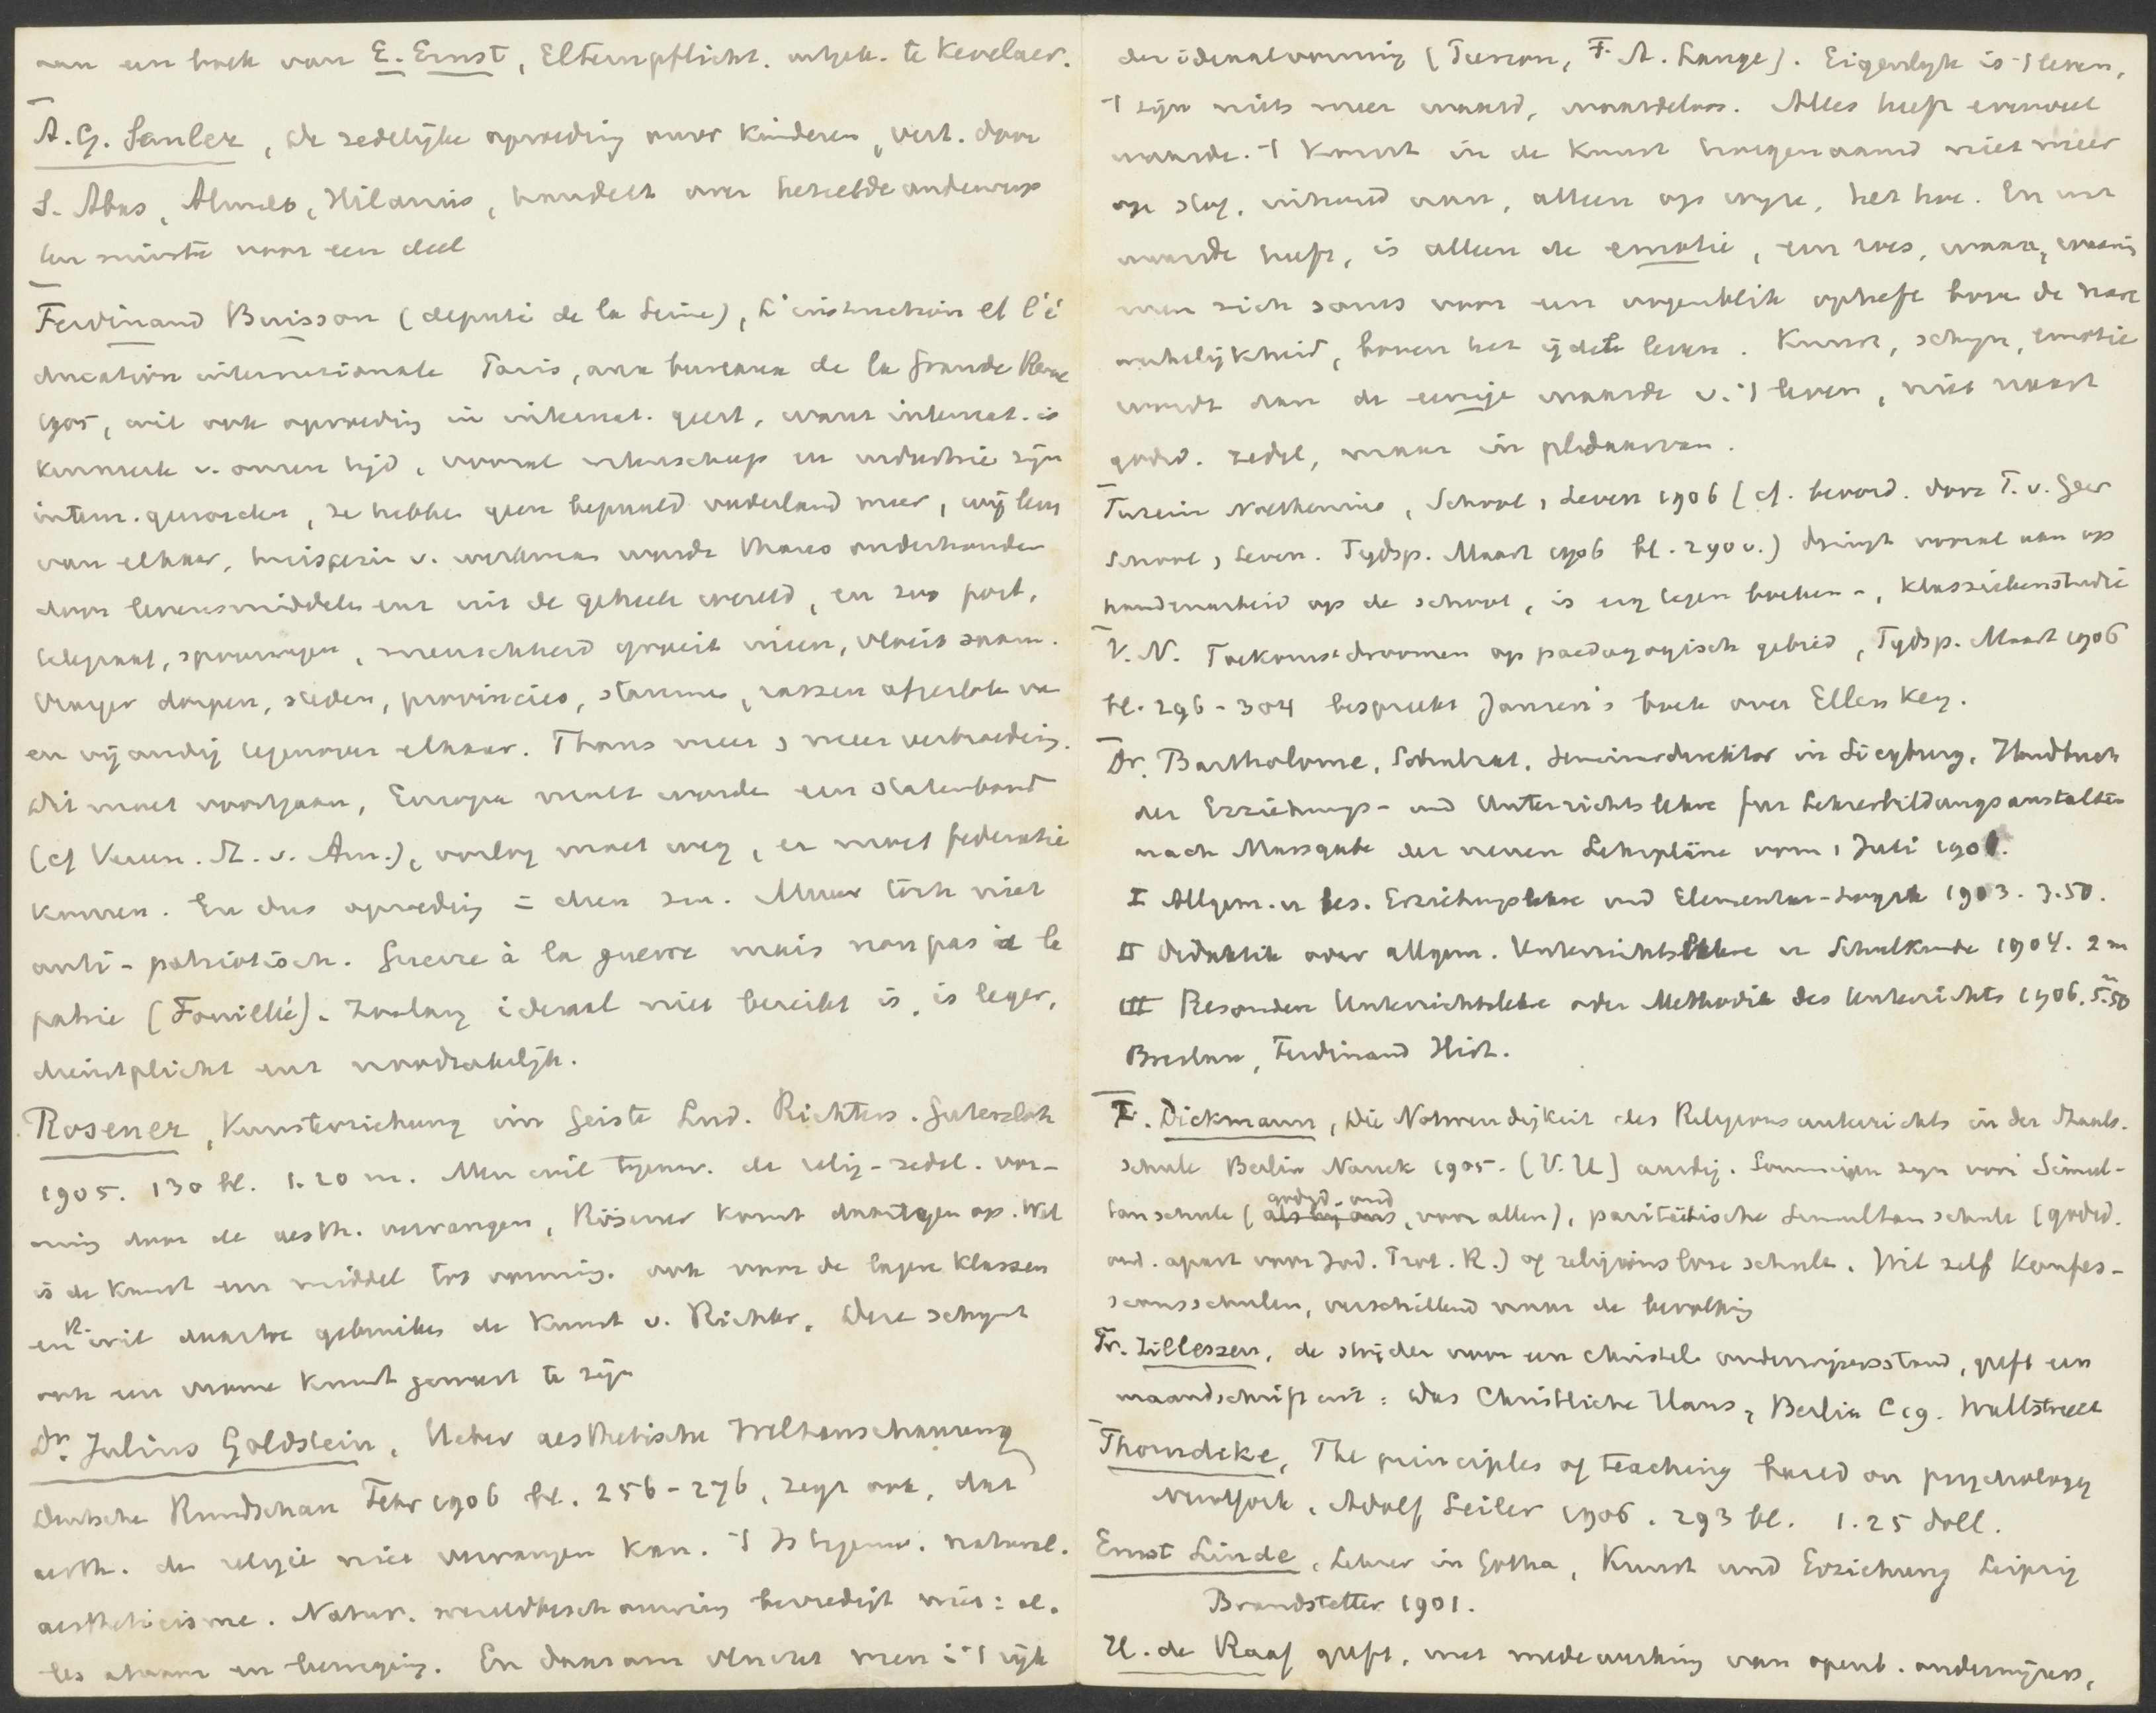 aan een boek van E. Ernst, Elternpflicht. uitgek. te Kevelaer.
A. G. Sanler, de zedelijke opvoeding onzer kinderen, vert. door
S. Abas, Almelo, Hilarius, handelt over hetzelfde onderwerp
ten minste voor een deel
Ferdinand Buisson (député de la Seine), L'instruction et l'é
ducation internationale Paris, aux bureaux de la Grande Revue
1905, wil ook opvoeding in internat. geest, want internat. is
kenmerk v. onzen tijd, vooral wetenschap en industrie zijn
intern. geworden, ze hebben geen bepaald vaderland meer, wij leven
van elkaar, huisgezin v. werkman wordt thans onderhouden
door levensmiddelen enz uit de geheele wereld, en zoo post,
telegraaf, spoorwegen, menschheid groeit ineen, vloeit saam.
Vroeger dorpen, steden, provincies, stammen, rassen afgesloten van
en vijandig tegenover elkaar. Thans meer en meer verbroedering.
Dit moet voortgaan, Europa moet worden een statenbond
(cf Veren. St. v. Am.), oorlog moet weg, er moet federatie
komen. En dus opvoeding in dien zin. Maar toch niet
anti-patriotisch. Guerre à la guerre mais non pas à la
patrie (Fouillée). Zoolang ideaal niet bereikt is, is leger,
dienstplicht enz noodzakelijk.
Rosener, Kunsterziehung im Geiste Lud. Richters. Gutersloh
1905. 130 bl. 1.20 m. Men wil tegenw. de relig-zedel. vor-
ming door de aesth. vervangen, Rösener komt daartegen op. Wel
is de kunst een middel tot vorming. ook voor de lagere klassen
en R. wil daartoe gebruiken de kunst v. Richter. Deze schijnt
ook een vrome kunstenaar te zijn
Dr. Julius Goldstein, Ueber aesthetische Weltanschauung
Deutsche Rundschau Febr 1906 bl. 256-276, zegt ook, dat
aesth. de religie niet vervangen kan. 't Is tegenw. natural.
aestheticisme. Natur. wereldbeschouwing bevredigt niet: al-
les atoom en beweging. En daarom vlucht men i 't rijk
der ideaalvorming (Renan, F. A. Lange). Eigenlijk is 't leven,
't zijn niets meer waard, waardeloos. Alles heeft evenveel
waarde. 't Komt in de kunst hoegenaamd niet meer
op stof, inhoud aan, alleen op wijze, het hoe. En wat
waarde heeft, is alleen de emotie, een roes, waarin
men zich soms voor een oogenblik opheft boven de nare
werkelijkheid, boven het ijdele leven. Kunst, schijn, emotie
wordt dan de eenige waarde v. 't leven, niet naast
godsd. zedel, maar in plaats daarvan.
Nathenius, School en Leven 1906 (cf. beoord. door P. v. Geer
School en Leven. Tijdsp. Maart 1906 bl. 290 v.) dringt vooral aan op
handenarbeid op de school, is erg tegen boeken-, klassiekenstudie
V. N. Toekomstdroomen op paedagogisch gebied, Tijdsp. Maart 1906
bl. 296-304 bespreekt Jansen's boek over Ellen Key.
Dr. Bartholome, Schulrat, Seminardirektor in Siegburg, Handbuch
der Erziehungs- und Unterrichtslehre fur Lehrerbildungsanstalten
nach Massgabe der neuen Lehrpläne vom 1 Juli 1901.
I Allgem. u bes. Erziehungslehre und Elementar-Logik 1903. 3.50.
II Didaktik oder allgem. Unterrichtslehre u Schulkunde 1904. 2 m
III Besondere Unterrichtslehre oder Methodik des Unterrichts 1906. 5.50 m
Breslau, Ferdinand Hirt.
E. Dickmann, Die Notwendigkeit des Religionsunterichts in der Staats.
schule Berlin Nauck 1905. (V. U) aardig. Sommigen zijn voor Simul-
tanschule (godsd. ond als bij ons, voor allen), paritätische Simultanschule (godsd.
ond. apart voor Jod. Prot. R.) of religionslose schule. Wil zelf Konfes-
sionsschulen, verschillend naar de bevolking
Fr. Zillessen, de strijder voor een christel. onderwijzersstand, geeft een
maandschrift uit: Das Christliche Haus, Berlin C 19. Wallstreet
Thorndeke, The principles of teaching based on psychology
NewYork. Adolf Seiler 1906. 293 bl. 1.25 doll.
Ernst Linde, Lehrer in Gotha, Kunst und Erziehung Leipzig
Brandstetter 1901.
H. de Raaf geeft, met medewerking van openb. onderwijzers,